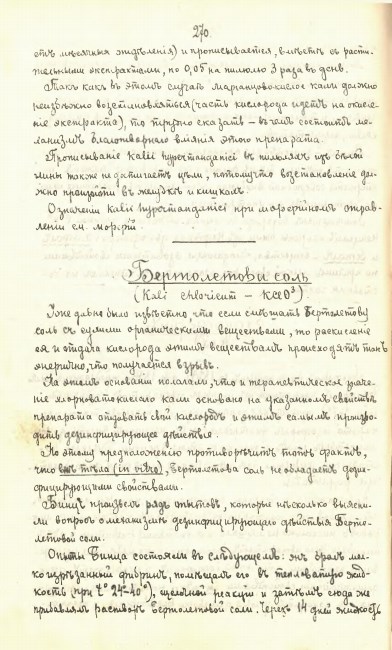 270.
отъ мѣсячныя отдѣленія) и прописывается, вмѣстѣ съ расти-
тельными экстрактами, по 0,05 на пилюлю 3 раза въ день.
Такъ какъ въ этомъ случаѣ марганцовокислое кали должно
неизбѣжно возстановляться (часть кислорода идетъ на окисле-
ніе экстракта), то трудно сказать – въ чемъ состоитъ ме-
ханизмъ благотворнаго вліянія этого препарата.
Прописываніе Kalii hypermanganici въ пилюляхъ изъ бѣлой
глины также не достигаетъ цѣли, потому что возстановленіе дол-
жно произойти въ желудкѣ и кишкахъ.
О значеніи Kalii hypermanganici при морфійномъ отрав-
леніи см. морфій.
Бертолетова соль
(Kali chloricum – KClO³)
Уже давно было извѣстно, что если смѣшать Бертолетову
соль съ сухими органическими веществами, то раскисленіе
ея и отдача кислорода этимъ веществамъ происходятъ такъ
энергично, что получается взрывъ.
На этомъ основаніи полагали, что и терапевтическое значе-
ніе хлорноватокислаго кали основано на указанномъ свойствѣ
препарата отдавать свой кислородъ и этимъ самымъ произво-
дить дезинфицирующее дѣйствіе.
Но этому предположенію противорѣчитъ тотъ фактъ,
что внѣ тѣла (in vitro), Бертолетова соль не обладаетъ дезин-
фицирующими свойствами.
Бинцъ произвелъ рядъ опытовъ, которые нѣсколько выясни-
ли вопросъ о механизмѣ дезинфицирующаго дѣйствія Берто-
летовой соли.
Опыты Бинца состояли въ слѣдующемъ: онъ бралъ мел-
ко изрѣзанный фибринъ, помѣщалъ его въ тепловатую жид-
кость (при t° 24–40°), щелочной реакціи и затѣмъ сюда же
прибавлялъ растворъ Бертолетовой соли. Черезъ 14 дней жидкость